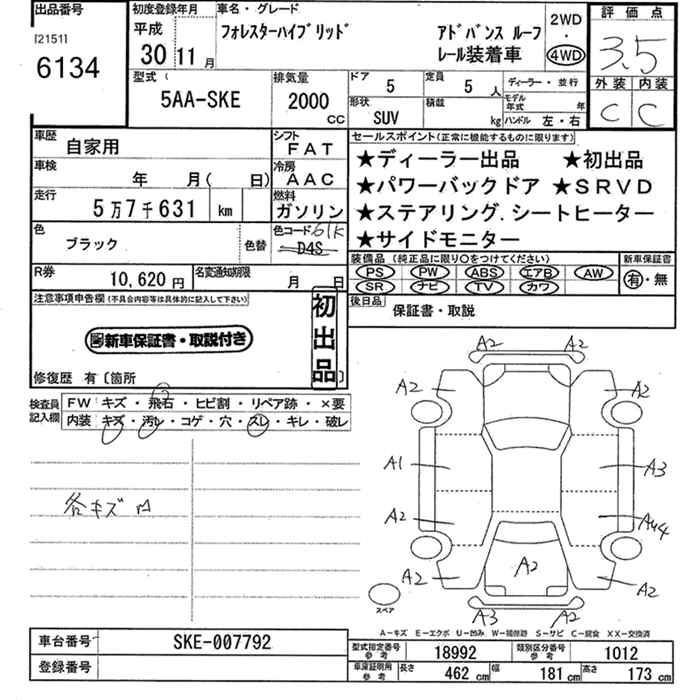 出品番号
[21511
6134
初度登録年月
平成
30 11月
車名・グレード
フォレスターハイブリッド
アドバンス ルーフ
レール装着車
2WD
・
4WD
評価点
3.5
外装 内装
C C
型式 (
5AA-SKE
排気量
2000
CC
ドア
5
定員
5人
ディーラー・並行
形状
SUV
積載
kg
モデル年式 年
ハンドル 左・右
車歴 自家用
シフト
FAT
車検 年 月( 日)
冷房
AAC
走行 5万7千631 km
燃料
ガソリン
色
ブラック
色替
色コード 61K
D4S
R券 10,620円
名変通知期限
月 日
セールスポイント(正常に機能するものに限ります)
★ディーラー出品 ★初出品
★パワーバックドア ★SRVD
★ステアリング.シートヒーター
★サイドモニター
装備品 (純正品に限り○をつけてください)
PS PW ABS エアB AW
SR ナビ TV カワ
新車保証書
有・無
後日品
保証書・取説
注意事項申告欄(不具合内容等は具体的に記入して下さい)
新車保証書・取説付き
初出品
修復歴 有〔箇所
検査員記入欄
FW キズ・飛石・ヒビ割・リペア跡・×要
内装 キズ・汚レ・コゲ・穴・スレ・キレ・破レ
各キズ
A2 A2
A2 A2
A1 A3
A2 A44
A2 A2 A2
A3 A2
スペア
A-キズ E-エクボ U-凹み W-補修跡 S-サビ C-腐食 XX-交換済
車台番号 SKE-007792
登録番号
型式指定番号
参考
18992
類別区分番号
参考
1012
車庫証明用
参考
長さ 462 cm 幅 181 cm 高さ 173 cm